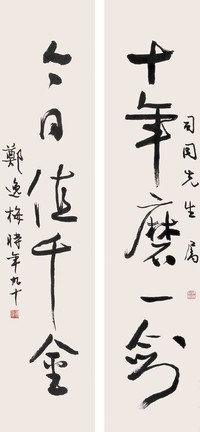 十年磨一剑
司同先生属
今日值千金
郑逸梅時年九十